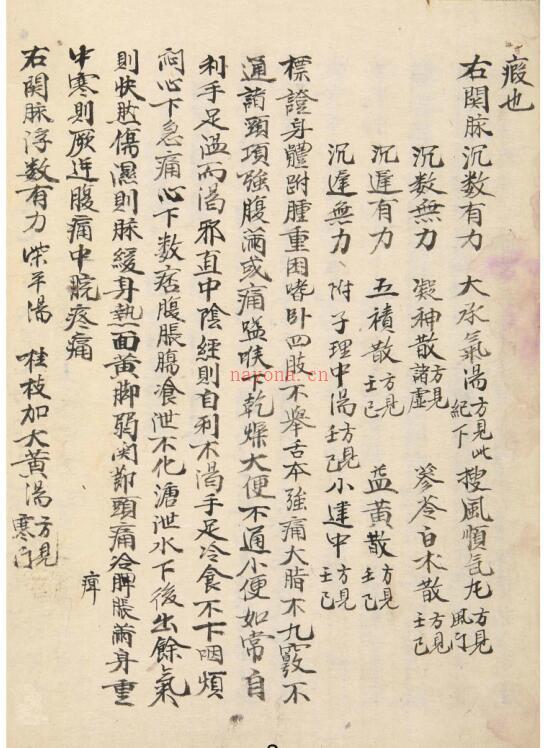 瘕也
右関脉沉数有力　大承氣湯方見此紀下　搜風順氣丸方見風门
沉数無力　凝神散方見諸虛　參苓白术散方見壬己
沉遅有力　五積散方見壬己　益黄散方見壬己
沉遅無力　附子理中湯方見壬己　小建中方見壬己
標證身體跗腫重困嗜卧四肢不舉舌本強痛大脂木九竅不
通諸頸項強腹滿或痛嗌喉下乾燥大便不通小便如常自
利手足温而渴邪直中陰經則自利不渴手足冷食不下咽煩
心下急痛心下数痞腹脹腸飡泄不化溏泄水下後出餘氣
則快然傷濕則脉緩身熱面黄脚弱関節頭痛冷脾脹滿身重
痺
中寒則厥逆腹痛中脘疼痛
右関脉浮数有力　柴平湯　桂枝加大黄湯方見寒门
nayona.cn